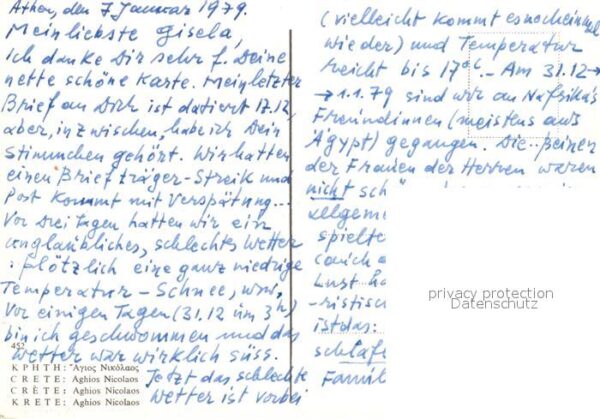 Athen, den 7 Januar 1979.
Mein liebste Gisela,
ich danke Dir sehr f. Deine
nette schöne Karte. Mein letzter
Brief an Dich ist datiert 17.12,
aber, inzwischen, habe ich Dein
Stimmchen gehört. Wir hatten
einen Briefträger-Streik und
Post kommt mit Verspätung...
Vor Drei Tagen hatten wir ein
unglaubliches, schlechtes Wetter
: plötzlich eine ganz niedrige
Temperatur - Schnee, usw,
Vor einigen Tagen (31.12 üm 3h)
bin ich geschwommen und das
Wetter war wirklich süss.
452
ΚΡΗΤΗ: Ἅγιος Νικόλαος
CRETE: Aghios Nicolaos
CRÈTE: Aghios Nicolaos
KRETE: Aghios Nicolaos
Jetzt das schlechte
Wetter ist vorbei
(vielleicht kommt es noch einmal
wieder) und Temperatur
reicht bis 17°C. - Am 31.12 →
→ 1.1.79 sind wir an Nafsika's
Freundinnen (meistens aus
Ägypt) gegangen. Die Beinen
der Frauen der Herren waren
nicht sch
allgeme
spielte
(auch a
Lust ha
-ristisc
ist das:
schlafe
Famil
privacy protection
Datenschutz